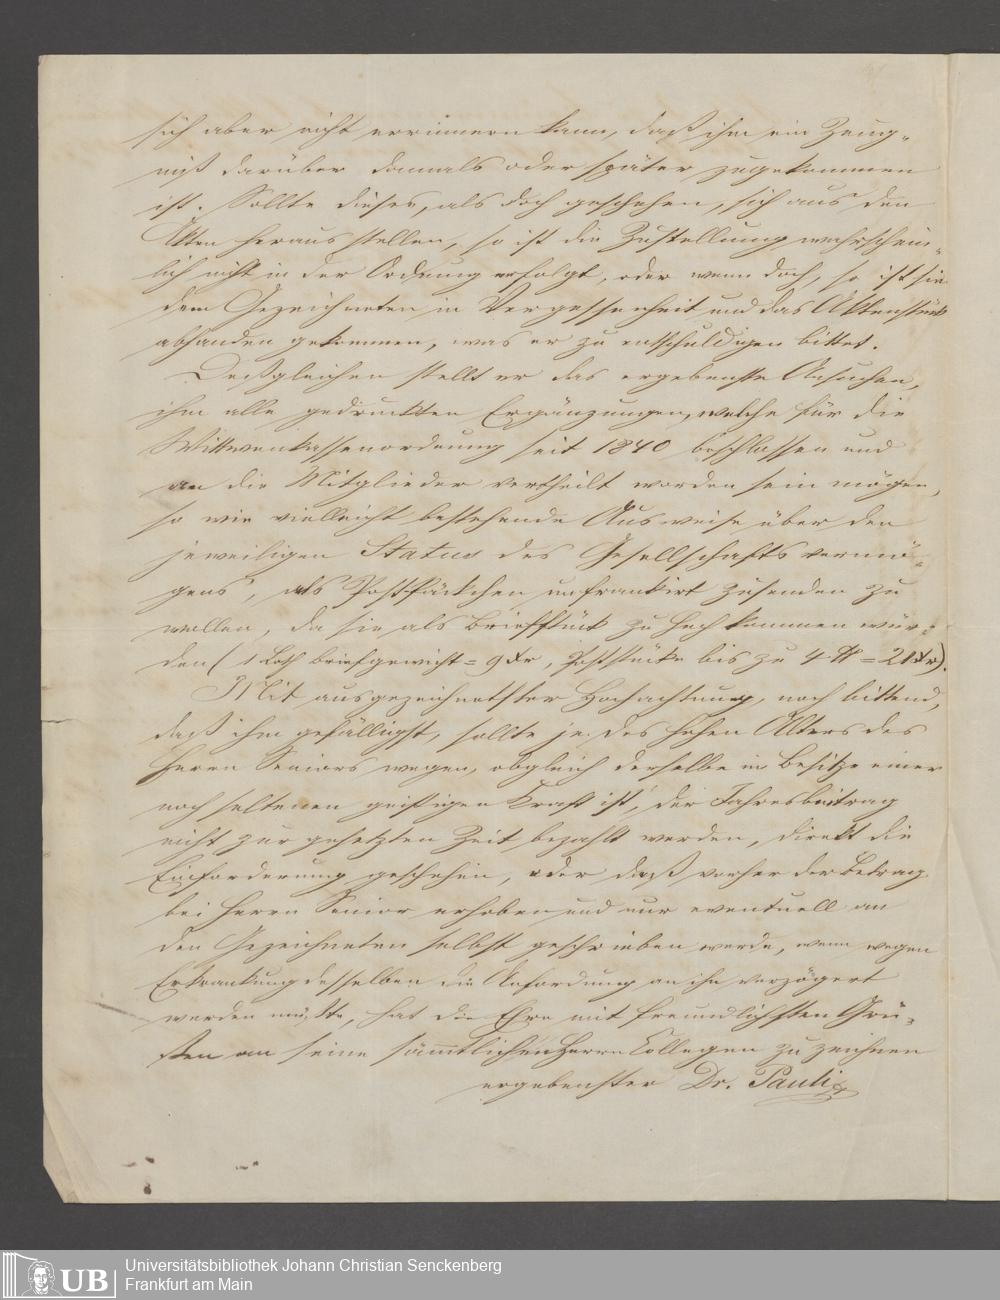 sich aber nicht erinnern kann, daß ihm ein Zeug-
niß darüber damals oder später zugekommen
ist. Sollte dieses, als doch geschehen, sich aus den
Akten heraus stellen, so ist die Zustellung wahrschein-
lich nicht in der Ordnung erfolgt, oder wenn doch, so ist sie
dem Gezeichneten in Vergessenheit und das Aktenstück
abhanden gekommen, was er zu entschuldigen bittet.
Deßgleichen stellt er das ergebenste Ansuchen,
ihm alle gedruckten Ergänzungen, welche für die
Wittwenkassenordnung seit 1840 beschlossen und
an die Mitglieder vertheilt worden sein mögen,
so wie vielleicht bestehende Ausweise über den
jeweiligen Status des Gesellschaftsvermö-
gens, als Postpäckchen unfrankirt zusenden zu
wollen, da sie als Briefstück zu hoch kommen wür-
den (1 Loth Briefgewicht = 9 Xr, Poststücke bis zu 4 ℔ = 21 Xr).
Mit ausgezeichnetster Hochachtung, noch bittend,
daß ihm gefälligst, sollte je des hohen Alters des
Herrn Seniors wegen, obgleich derselbe im Besitze einer
noch seltenen geistigen Kraft ist, der Jahresbeitrag
nicht zur gesetzten Zeit bezahlt werden, direkt die
Einforderung geschehen, oder daß vorher der Betrag
bei Herrn Senior erhoben und nur eventuell an
den Gezeichneten selbst geschrieben werde, wenn wegen
Erkrankung desselben die Anforderung an ihn verzögert
werden müßte, hat die Ehre mit freundlichsten Grü-
ßen an seine sämmtlichen Herrn Collegen zu zeichnen
ergebenster Dr. Pauli
UB
Universitätsbibliothek Johann Christian Senckenberg
Frankfurt am Main